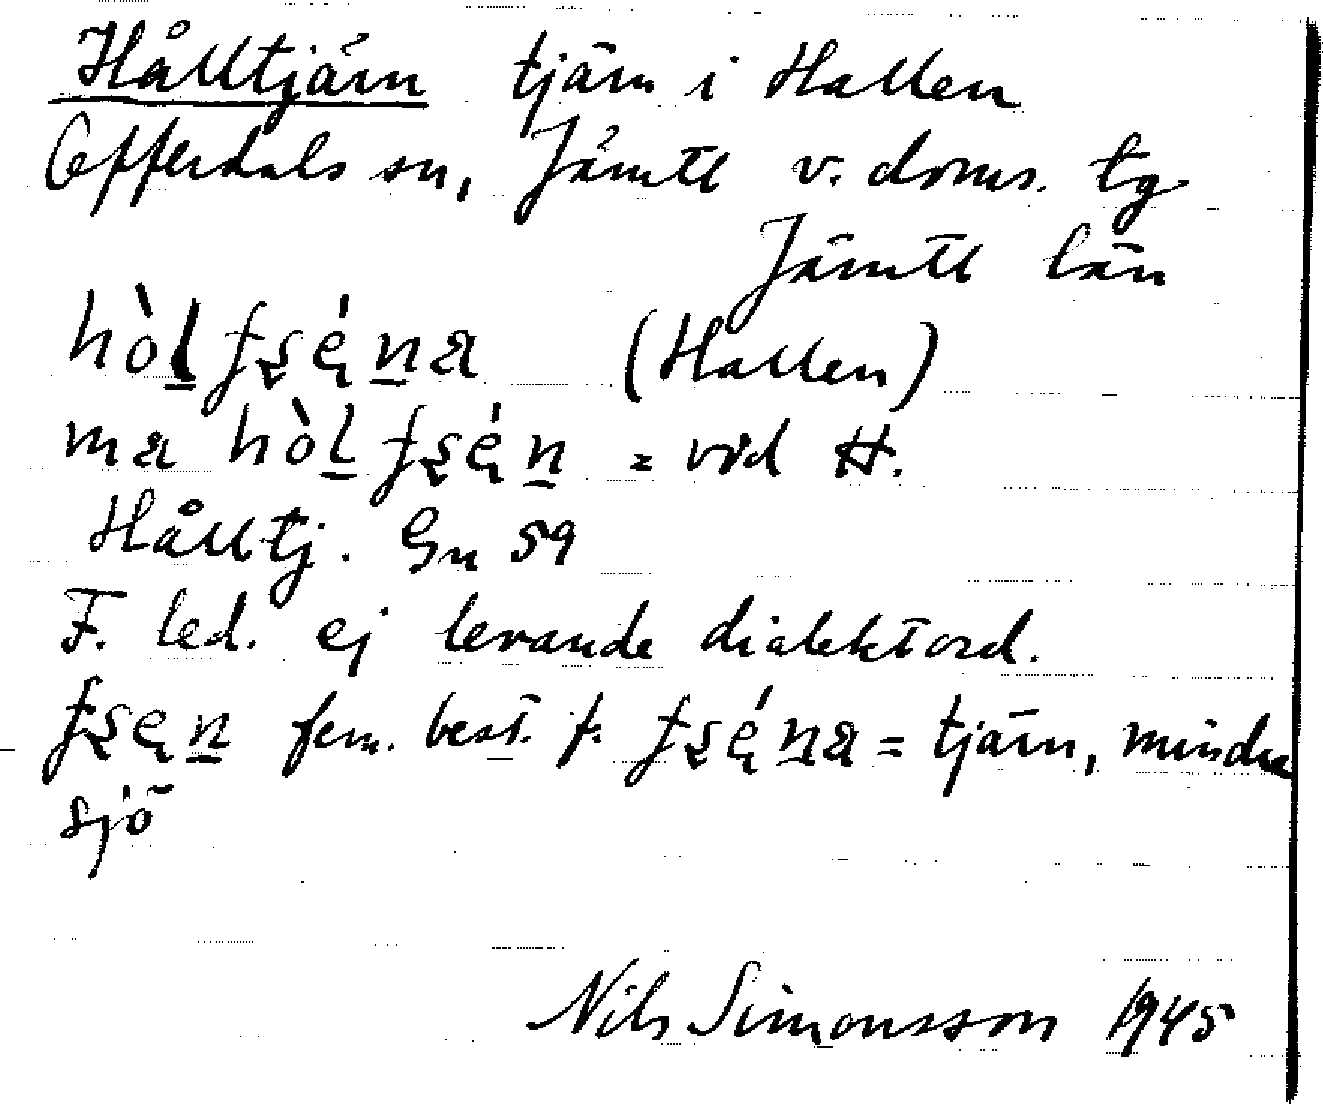 Hålltjärn tjärn i Hallen
Offerdals sn, Jämtl v. doms. tg
Jämtl län
hòl̠ ʄʂę́n̠a (Hallen)
ma hòl̠ ʄʂę́n̠ = vid H.
Hålltj. Gn 59
F. led. ej levande dialektord.
ʄʂęn̠ fem. best. f. ʄʂę́n̠a = tjärn, mindre
sjö
Nils Simonsson 1945